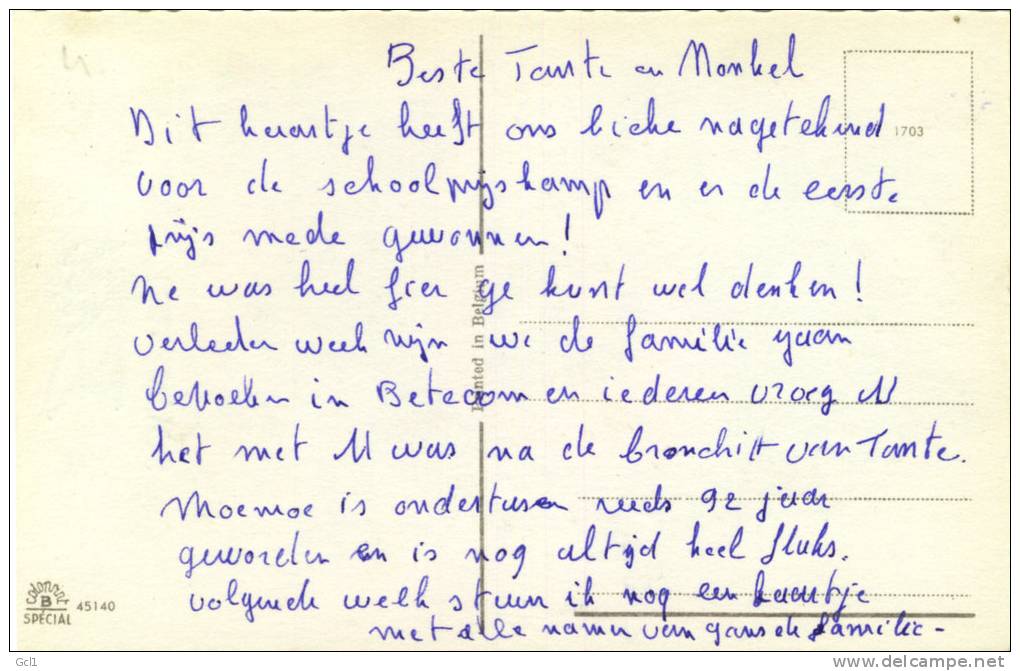 Beste Tante en Nonkel
Dit kaartje heeft ons nagetekend
1703
voor de schoolprijskamp en er de eerste
prijs mede gewonnen!
He was heel fier ge kunt wel denken!
Printed in Belgium
verleden week zijn we de familie gaan
bezoeken in Betecom en iederen vroeg
het met U was na de bronchitt van Tante.
Moemoe is ondertusen reeds 92 jaar
geworden en is nog altijd heel fluks.
volgende week stuur ik nog een kaartje
met alle namen van gans de familie -
colorprint
B
SPECIAL
45140
Gcl1
http://www.delcampe.net